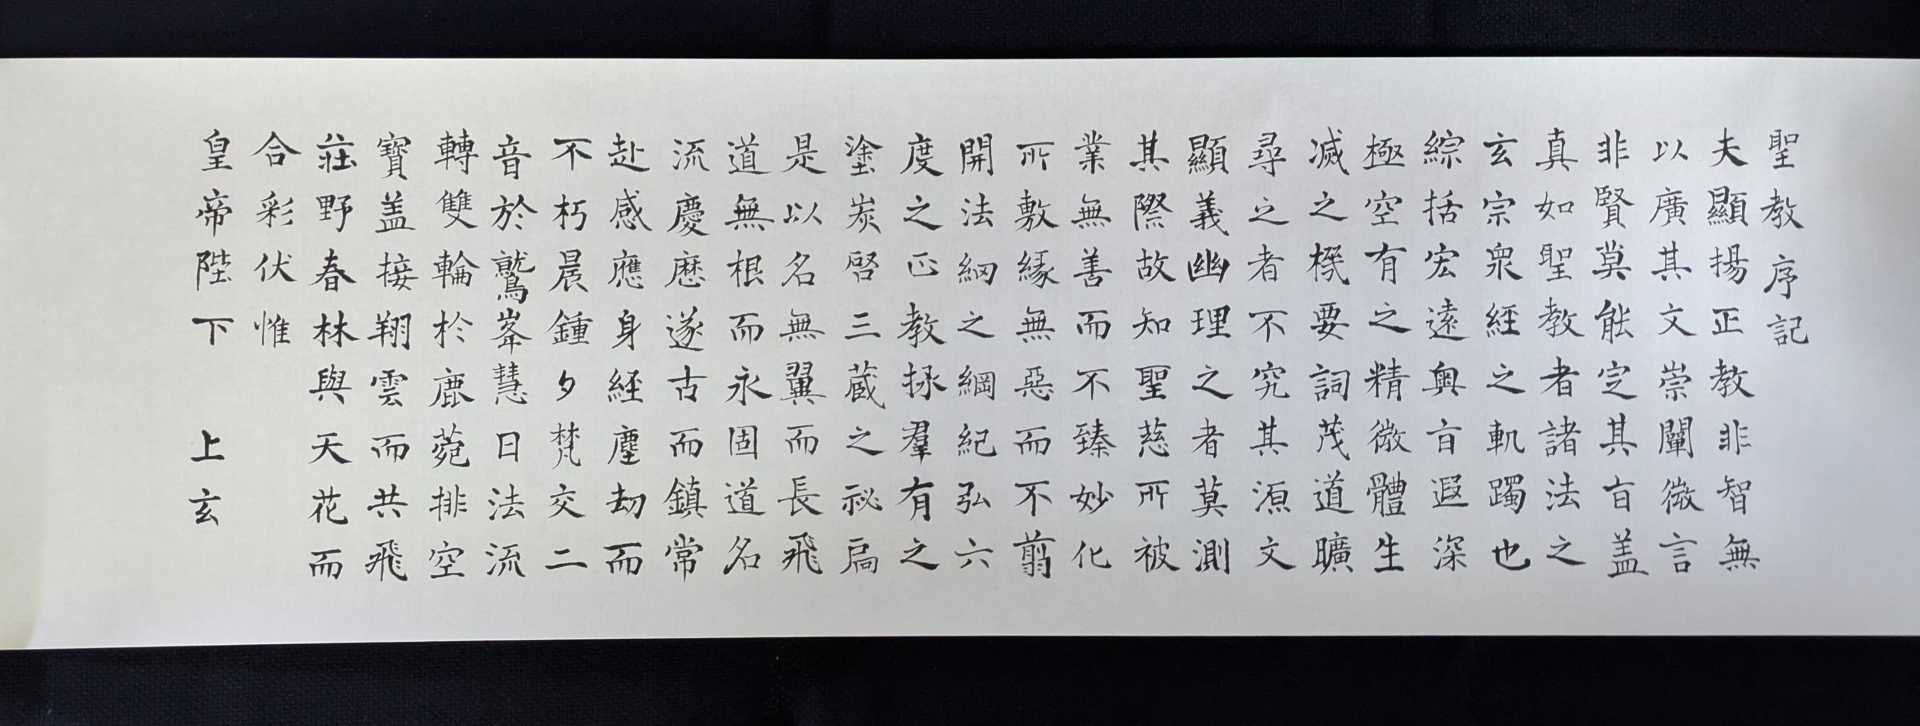 聖教序記
夫顯揚正教非智無
以廣其文崇闡微言
非賢莫能定其旨盖
真如聖教者諸法之
玄宗衆經之軌躅也
綜括宏遠奥旨遐深
極空有之精微體生
滅之機要詞茂道曠
尋之者不究其源文
顯義幽理之者莫測
其際故知聖慈所被
業無善而不臻妙化
所敷緣無惡而不翦
開法網之綱紀弘六
度之正教拯羣有之
塗炭啓三藏之祕扃
是以名無翼而長飛
道無根而永固道名
流慶歷遂古而鎮常
赴感應身經塵劫而
不朽晨鍾夕梵交二
音於鷲峯慧日法流
轉雙輪於鹿菀排空
寶盖接翔雲而共飛
莊野春林與天花而
合彩伏惟
皇帝陛下 上玄